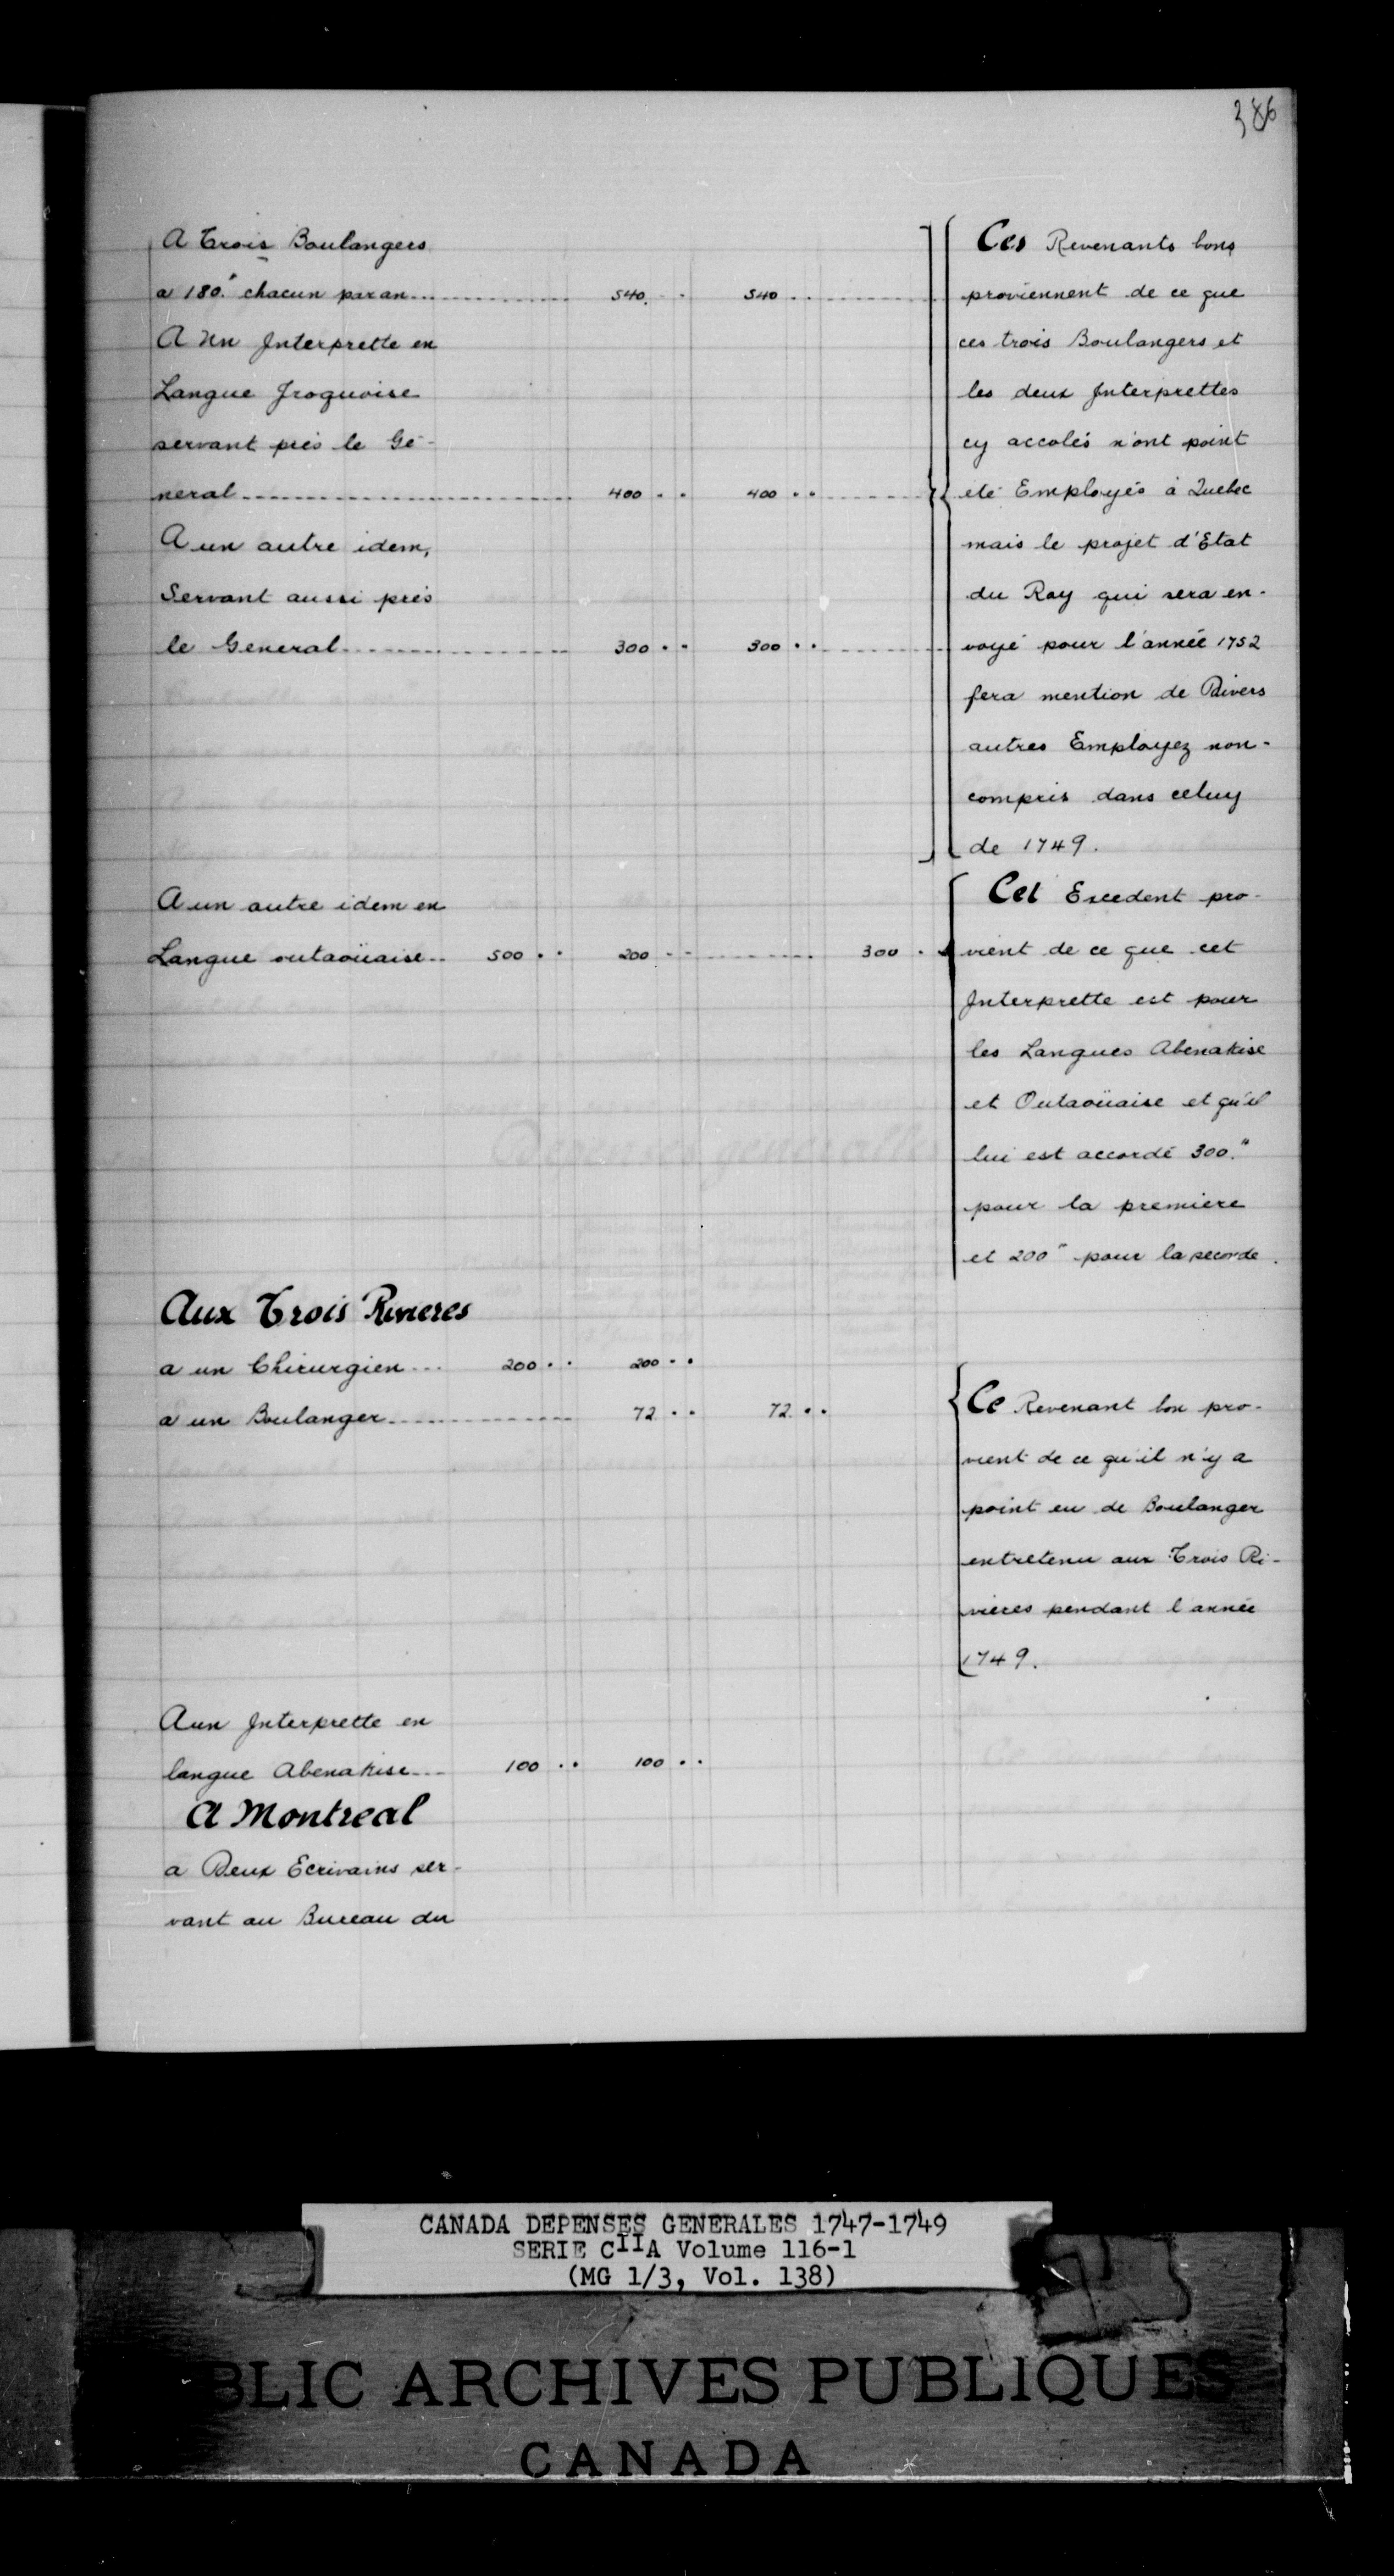 386
A Trois Boulangers
a 180.# chacun par an............ 540. . 540 . .
A Un Interprette en
Langue Iroquoise
servant près le Gé-
neral............ 400 . . 400 . .
A un autre idem,
Servant aussi près
le General............ 300 . . 300 . .
Ces Revenants bons
proviennent de ce que
ces trois Boulangers et
les deux Interprettes
cy accolés n'ont point
eté Employés à Quebec
mais le projet d'Etat
du Roy qui sera en-
voyé pour l'année 1752
fera mention de Divers
autres Employez non-
compris dans celuy
de 1749.
A un autre idem en
Langue outaoüaise.. 500 . . 200 . . ............ 300 . .
Cet Excedent pro-
vient de ce que cet
Interprette est pour
les Langues Abenakise
et Outaoüaise et qu'il
lui est accordé 300.#
pour la premiere
et 200# pour la seconde.
Aux Trois Rivieres
a un Chirurgien... 200 . . 200 . .
a un Boulanger............ 72 . . 72 . .
Ce Revenant bon pro-
vient de ce qu'il n'y a
point eu de Boulanger
entretenu aux Trois Ri-
vieres pendant l'année
1749.
A un Interprette en
langue Abenakise... 100 . . 100 . .
A Montreal
a Deux Ecrivains ser-
vant au Bureau du
CANADA DEPENSES GENERALES 1747-1749
SERIE CIIA Volume 116-1
(MG 1/3, Vol. 138)
BLIC ARCHIVES PUBLIQUES
CANADA